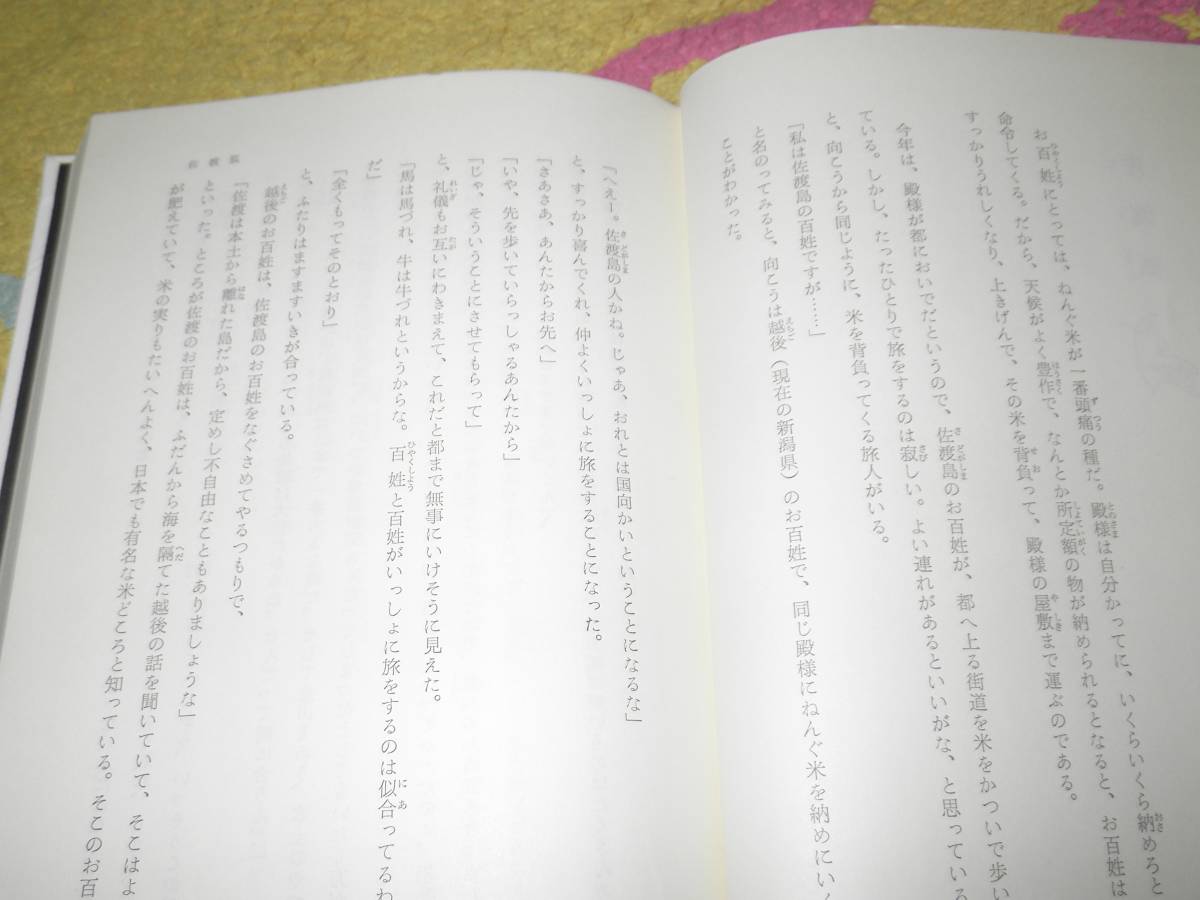 お百姓にとっては、ねんぐ米が一番頭痛の種だ。殿様は自分かってに、いくらいくら納めろと
命令してくる。だから、天候がよく豊作で、なんとか所定額の物が納められるとなると、お百姓は
すっかりうれしくなり、上きげんで、その米を背負って、殿様の屋敷まで運ぶのである。
今年は、殿様が都においでだというので、佐渡島のお百姓が、都へ上る街道を米をかついで歩い
ている。しかし、たったひとりで旅をするのは寂しい。よい連れがあるといいがな、と思っている
と、向こうから同じように、米を背負ってくる旅人がいる。
「私は佐渡島の百姓ですが……」
と名のってみると、向こうは越後（現在の新潟県）のお百姓で、同じ殿様にねんぐ米を納めにいく
ことがわかった。
「へえー。佐渡島の人かね。じゃあ、おれとは国向かいということになるな」
と、すっかり喜んでくれ、仲よくいっしょに旅をすることになった。
「さあさあ、あんたからお先へ」
「いや、先を歩いていらっしゃるあんたから」
「じゃ、そういうことにさせてもらって」
と、礼儀もお互いにわきまえて、これだと都まで無事にいけそうに見えた。
「馬は馬づれ、牛は牛づれというからな。百姓と百姓がいっしょに旅をするのは似合ってるわ
だ」
「全くもってそのとおり」
と、ふたりはますますいきが合っている。
越後のお百姓は、佐渡島のお百姓をなぐさめてやるつもりで、
「佐渡は本土から離れた島だから、定めし不自由なこともありましょうな」
といった。ところが佐渡のお百姓は、ふだんから海を隔てた越後の話を聞いていて、そこはよ
が肥えていて、米の実りもたいへんよく、日本でも有名な米どころと知っている。そこのお百